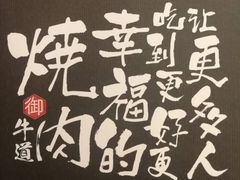 让更多人
吃到更好更
幸福的
燒肉
御
牛道